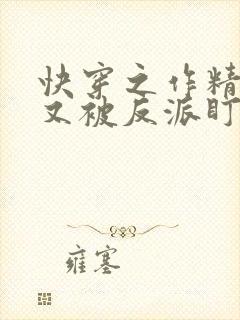 快穿之作精
又被反派盯
雍塞